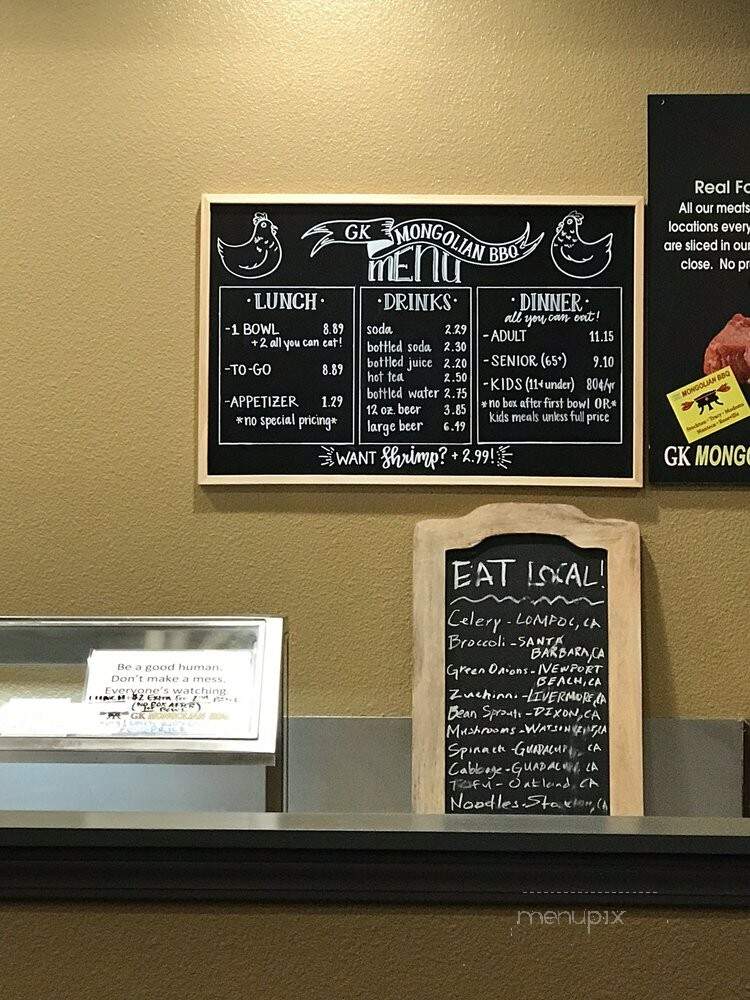 GK MONGOLIAN BBQ
MENU
·LUNCH·
-1 BOWL 8.89
+2 all you can eat!
-TO-GO 8.89
-APPETIZER 1.29
*no special pricing*
·DRINKS·
soda 2.29
bottled soda 2.30
bottled juice 2.20
hot tea 2.50
bottled water 2.75
12 oz. beer 3.85
large beer 6.49
·DINNER·
all you can eat!
-ADULT 11.15
-SENIOR (65+) 9.10
-KIDS (11 & under) 80¢/yr
*no box after first bowl OR*
kids meals unless full price
WANT Shrimp? + 2.99!
Real Fo
All our meats
locations every
are sliced in our
close. No pr
MONGOLIAN BBQ
Stockton · Tracy · Modesto
Manteca · Roseville
GK MONGO
EAT LOCAL!
Celery - LOMPOC, CA
Broccoli - SANTA
BARBARA, CA
Green Onions - NEWPORT
BEACH, CA
Zucchinni - LIVERMORE, CA
Bean Sprouts - DIXON, CA
Mushrooms - WATSONVILLE, CA
Spinach - GUADALU CA
Cabbage - GUADALU CA
TOFU - Oakland, CA
Noodles - Stockton, CA
Be a good human.
Don't make a mess.
Everyone's watching.
LUNCH $2 Extra For 2nd Bowl
(NO BOX AFTER)
1st BOWL
GK MONGOLIAN BBQ
menupix